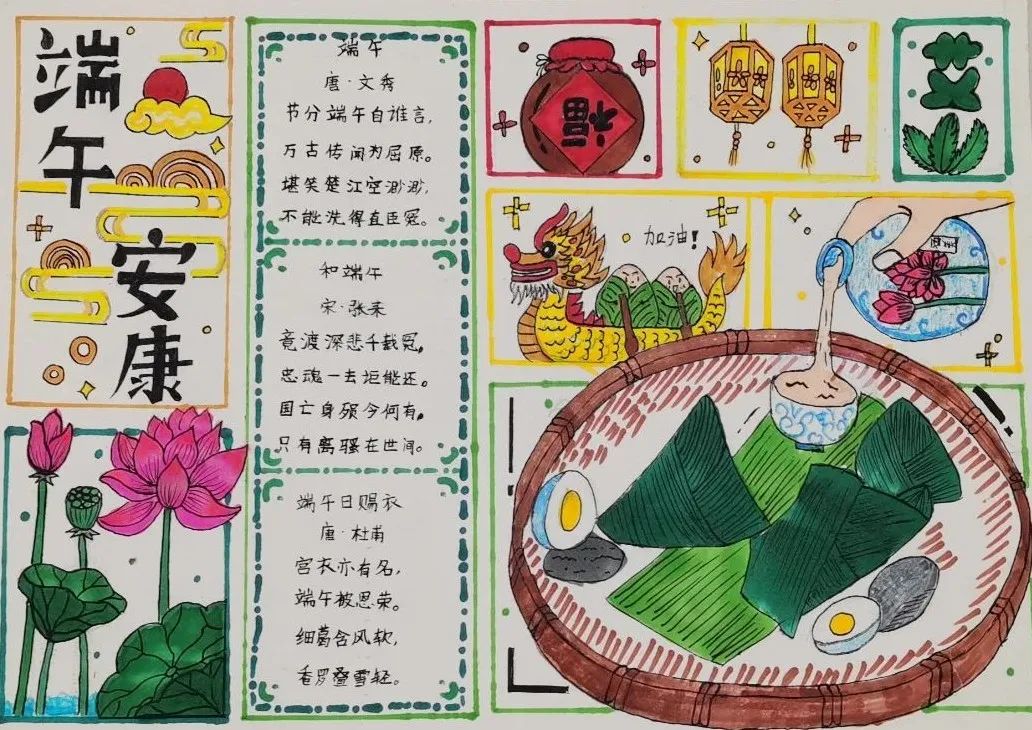 端午
安康
端午
唐·文秀
节分端午自谁言,
万古传闻为屈原。
堪笑楚江空渺渺,
不能洗得直臣冤。
和端午
宋·张耒
竞渡深悲千载冤。
忠魂一去讵能还。
国亡身殒今何有。
只有离骚在世间。
端午日赐衣
唐·杜甫
宫衣亦有名,
端午被恩荣。
细葛含风软,
香罗叠雪轻。
福
加油!